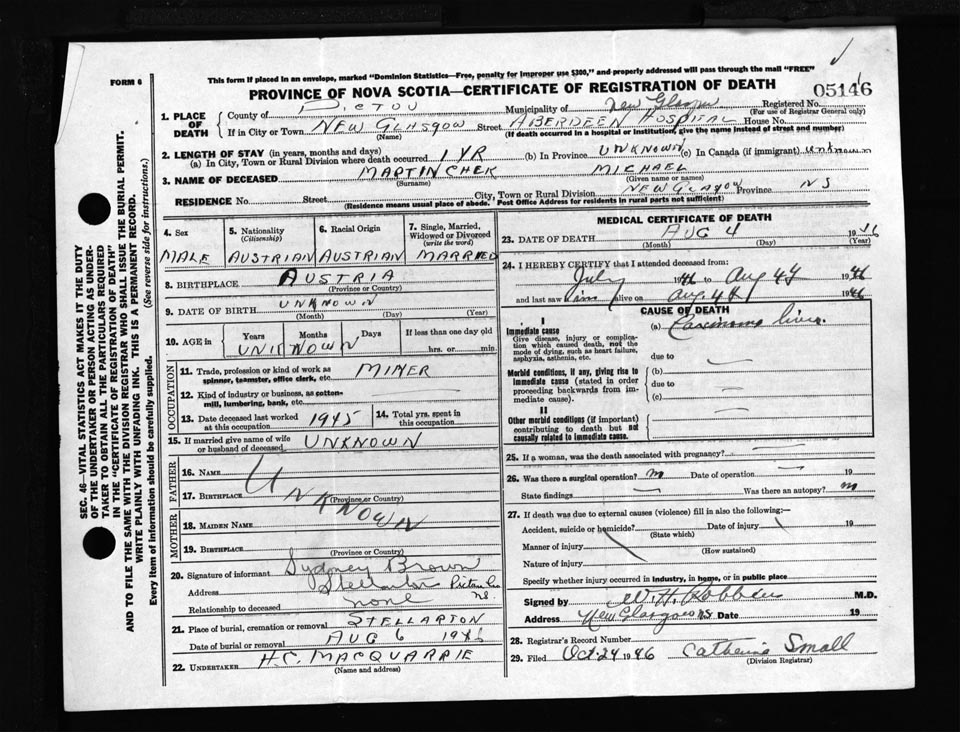 FORM 6
This form if placed in an envelope, marked "Dominion Statistics—Free, penalty for improper use $300," and properly addressed will pass through the mail "FREE"
PROVINCE OF NOVA SCOTIA—CERTIFICATE OF REGISTRATION OF DEATH
05146
1. PLACE OF DEATH
County of PICTOU Municipality of New Glasgow Registered No.
(For use of Registrar General only)
If in City or Town NEW GLASGOW Street ABERDEEN HOSPITAL House No.
(Name) (If death occurred in a hospital or institution, give the name instead of street and number)
2. LENGTH OF STAY (in years, months and days)
(a) In City, Town or Rural Division where death occurred 1 YR (b) In Province UNKNOWN (c) In Canada (if immigrant) unknown
3. NAME OF DECEASED MARTINCHEK MICHAEL
(Surname) (Given name or names)
RESIDENCE No. Street City, Town or Rural Division NEW GLASGOW Province NS
(Residence means usual place of abode. Post Office Address for residents in rural parts not sufficient)
4. Sex
MALE
5. Nationality
(Citizenship)
AUSTRIAN
6. Racial Origin
AUSTRIAN
7. Single, Married, Widowed or Divorced
(write the word)
MARRIED
8. BIRTHPLACE AUSTRIA
(Province or Country)
9. DATE OF BIRTH UNKNOWN
(Month) (Day) (Year)
10. AGE in Years Months Days If less than one day old
UNKNOWN hrs. or min.
OCCUPATION
11. Trade, profession or kind of work as MINER
spinner, teamster, office clerk, etc.
12. Kind of industry or business, as cotton-
mill, lumbering, bank, etc.
13. Date deceased last worked at this occupation 1945
14. Total yrs. spent in this occupation
15. If married give name of wife or husband of deceased UNKNOWN
FATHER
16. Name
17. Birthplace
(Province or Country)
UNKNOWN
MOTHER
18. Maiden Name
19. Birthplace
(Province or Country)
20. Signature of informant Sydney Brown
Address Stellarton Pictou Co NS.
Relationship to deceased none
21. Place of burial, cremation or removal STELLARTON
Date of burial or removal AUG 6 1946
22. UNDERTAKER H.C. MACQUARRIE
(Name and address)
MEDICAL CERTIFICATE OF DEATH
23. DATE OF DEATH AUG 4 1946
(Month) (Day) (Year)
24. I HEREBY CERTIFY that I attended deceased from:
July 1946 to Aug 4th 1946
and last saw him alive on Aug. 4th 1946
CAUSE OF DEATH
I
Immediate cause
Give disease, injury or complication which caused death, not the mode of dying, such as heart failure, asphyxia, asthenia, etc.
(a) Carcinoma liver.
due to
Morbid conditions, if any, giving rise to immediate cause (stated in order proceeding backwards from immediate cause).
(b)
due to
(c)
II
Other morbid conditions (if important) contributing to death but not causally related to immediate cause.
25. If a woman, was the death associated with pregnancy?
26. Was there a surgical operation? Date of operation 19
State findings Was there an autopsy?
27. If death was due to external causes (violence) fill in also the following:—
Accident, suicide or homicide? Date of injury 19
(State which)
Manner of injury
(How sustained)
Nature of injury
Specify whether injury occurred in industry, in home, or in public place
Signed by W.H. Robbins M.D.
Address New Glasgow NS Date 19
28. Registrar's Record Number
29. Filed Oct 24 1946 Catherine Small
(Division Registrar)
SEC. 46—VITAL STATISTICS ACT MAKES IT THE DUTY
OF THE UNDERTAKER OR PERSON ACTING AS UNDER-
TAKER TO OBTAIN ALL THE PARTICULARS REQUIRED
IN THE "CERTIFICATE OF REGISTRATION OF DEATH"
AND TO FILE THE SAME WITH THE DIVISION REGISTRAR WHO SHALL ISSUE THE BURIAL PERMIT.
WRITE PLAINLY WITH UNFADING INK. THIS IS A PERMANENT RECORD.
Every item of Information should be carefully supplied. (See reverse side for instructions.)